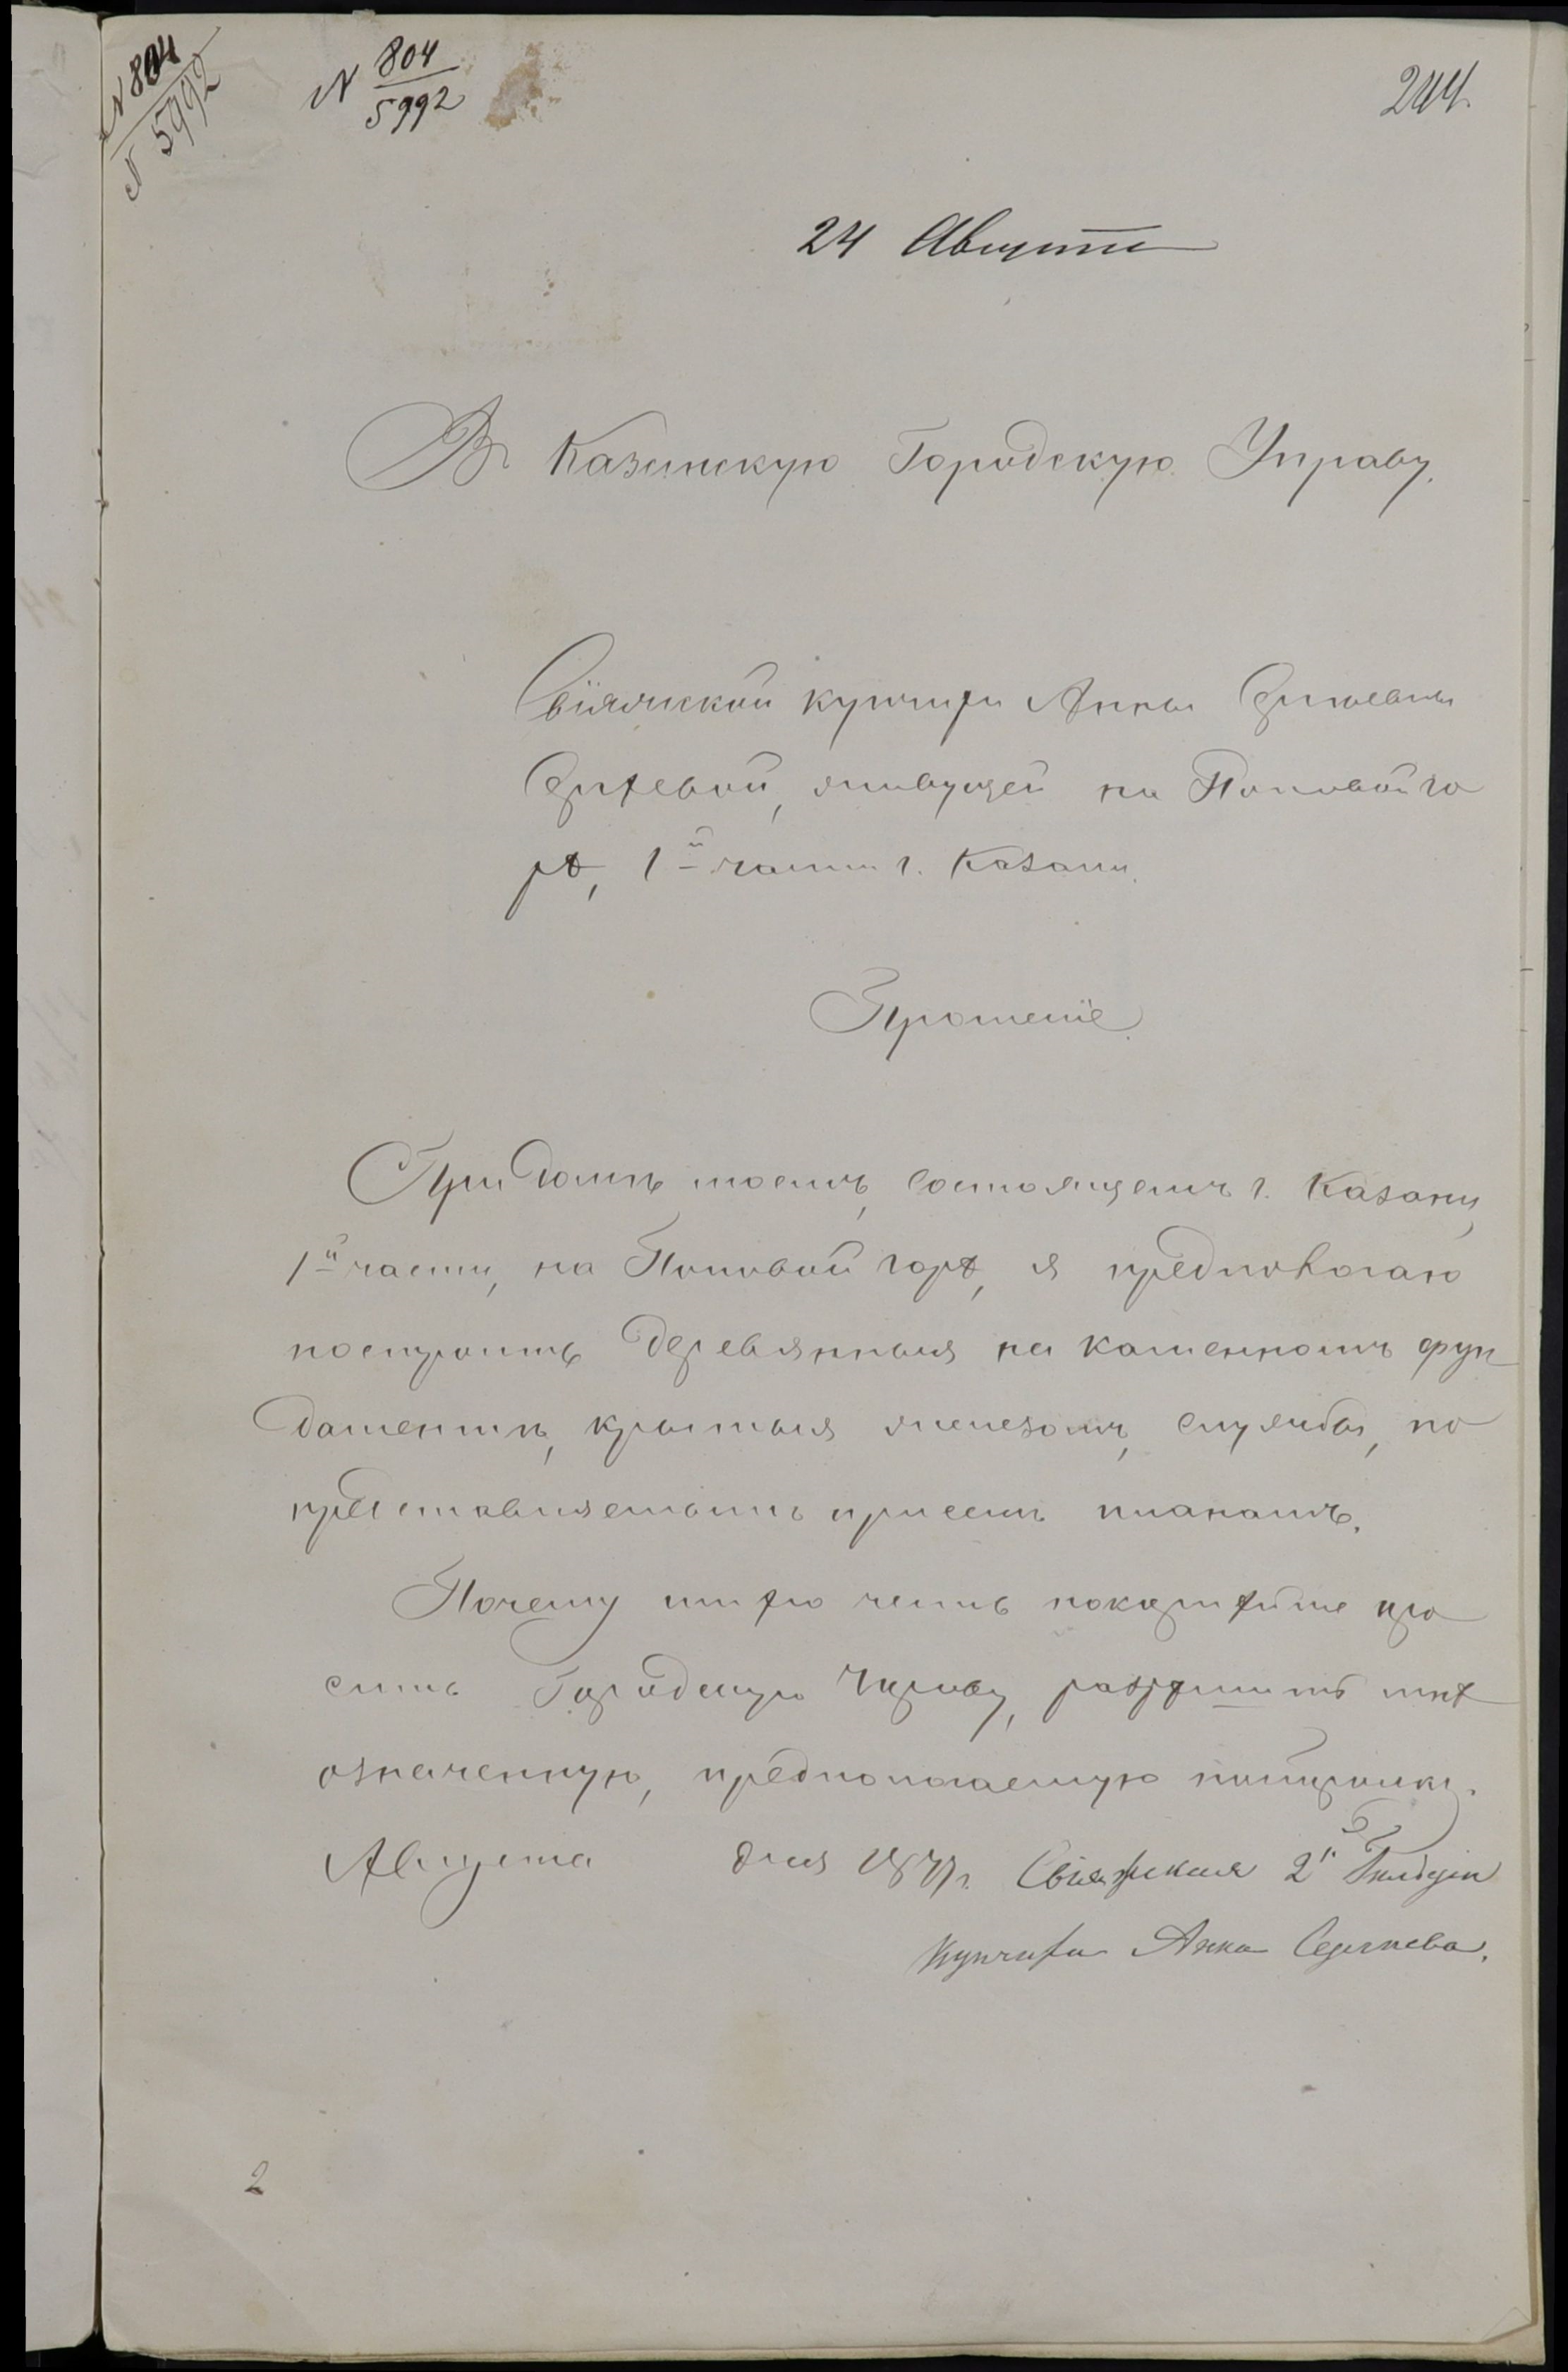 N 804
N 5992
N 804
5992
244.
24 Августа
Въ Казанскую Городскую Управу.
Свіяжской купчихи Анны Сергѣевны
Сергѣевой, живущей на Поповой го
рѣ, 1й части г. Казани.
Прошеніе.
При домѣ моемъ, состоящемъ г. Казани,
1й части, на Поповой горѣ, я предполагаю
построить деревянныя на каменномъ фун
даментѣ, крытыя железомъ, службы, по
представляемымъ присемъ планамъ.
Почему имѣю честь покорнѣйше про
сить Городскую Управу, разрѣшить мнѣ
означенную, предполагаемую постройку.
Августа дня 1877 г. Свіяжская 2й Гильдіи
Купчиха Анна Сергеева.
2